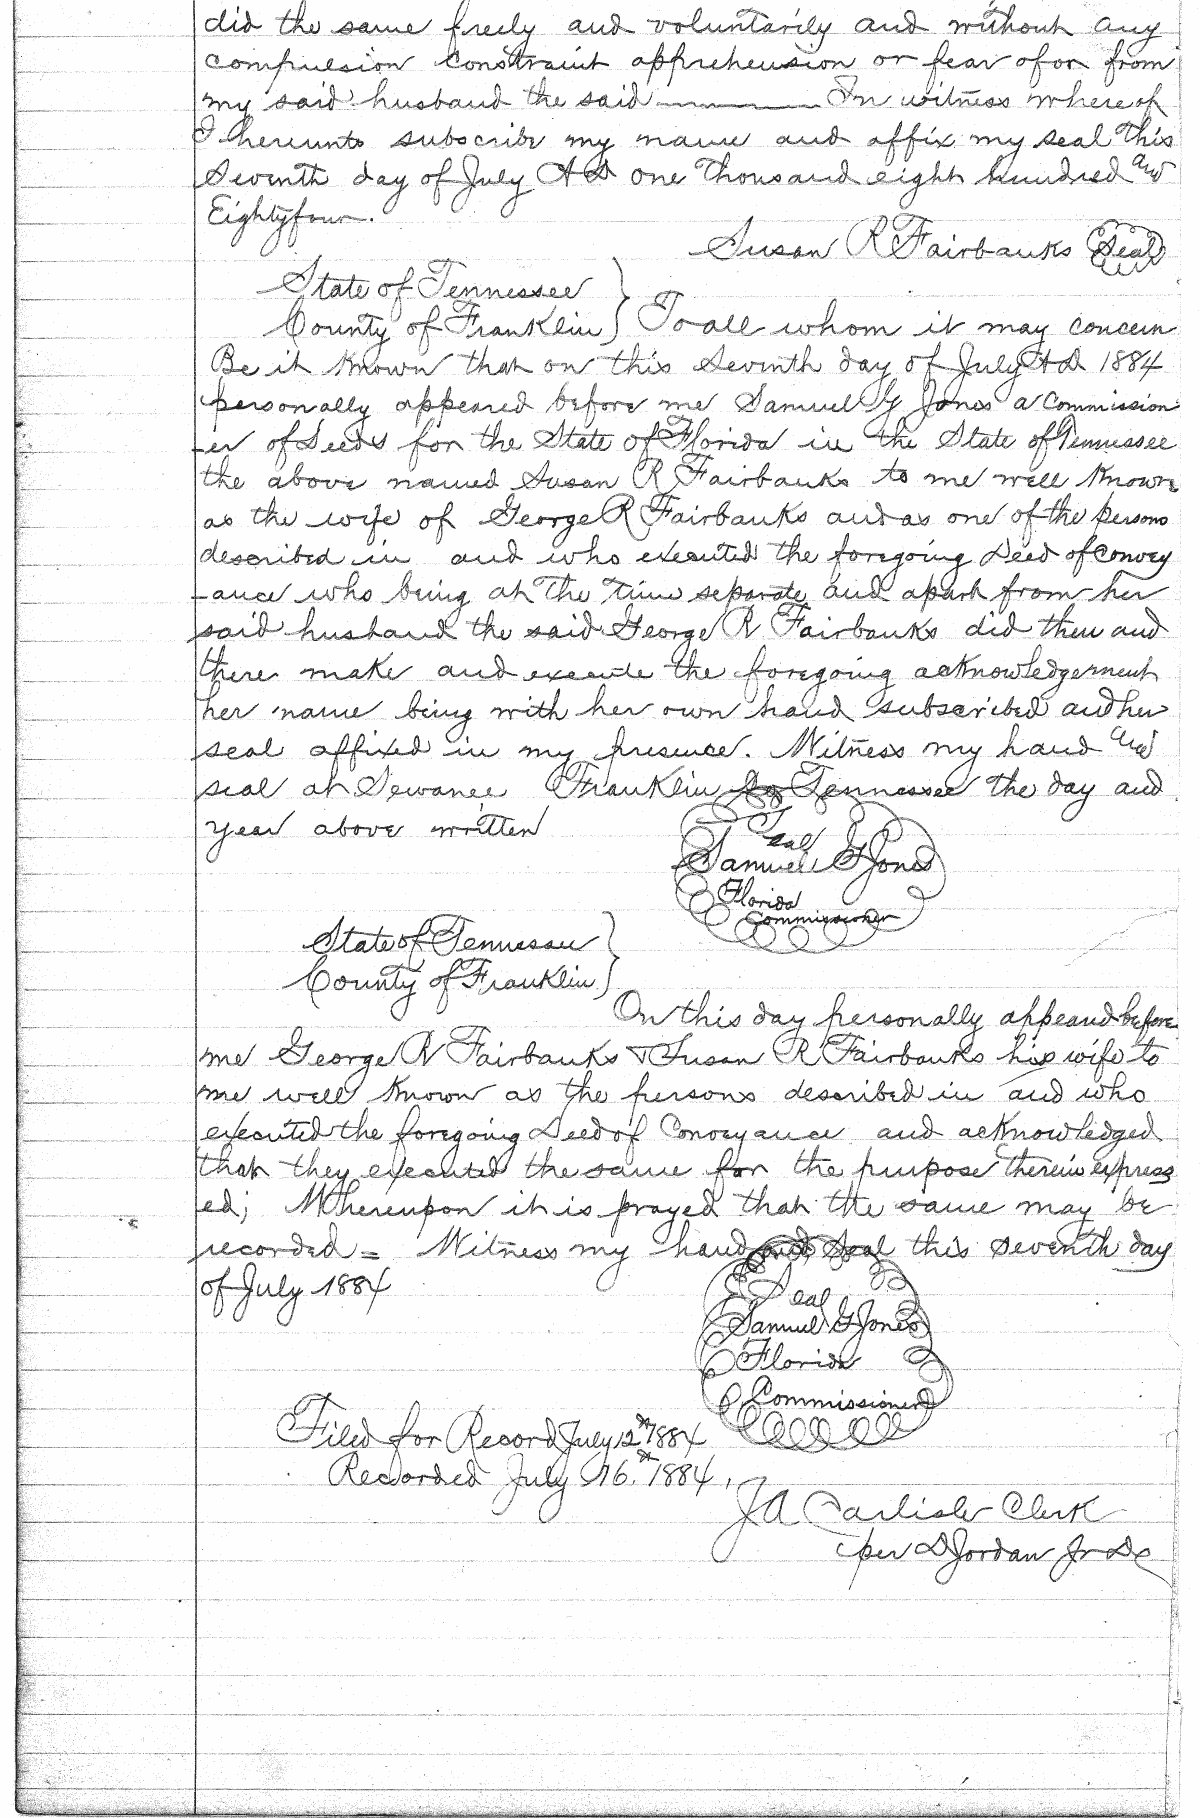 did the same freely and voluntarily and without any
compulsion constraint apprehension or fear of or from
my said husband the said ———— In witness whereof
I hereunto subscribe my name and affix my seal this
Seventh day of July AD one thousand eight hundred and
Eightyfour.
Susan R Fairbanks Seal
State of Tennessee }
County of Franklin } To all whom it may concern
Be it known that on this Seventh day of July AD 1884
personally appeared before me Samuel G Jones a Commission
-er of Deeds for the State of Florida in the State of Tennessee
the above named Susan R Fairbanks to me well known
as the wife of George R Fairbanks and as one of the persons
described in and who executed the foregoing Deed of Convey
-ance who being at the time separate and apart from her
said husband the said George R Fairbanks did then and
there make and execute the foregoing acknowledgement
her name being with her own hand subscribed and her
seal affixed in my presence. Witness my hand and
seal at Sewanee Franklin Co Tennessee the day and
year above written
Seal
Samuel G Jones
Florida
Commissioner
State of Tennessee }
County of Franklin }
On this day personally appeared before
me George R Fairbanks & Susan R Fairbanks his wife to
me well known as the persons described in and who
executed the foregoing Deed of Conveyance and acknowledged
that they executed the same for the purpose therein express
ed; Whereupon it is prayed that the same may be
recorded = Witness my hand and Seal this seventh day
of July 1884
Seal
Samuel G Jones
Florida
Commissioner
Filed for Record July 12th 1884
Recorded July 16th 1884,
J A Carlisle Clerk
per D Jordan Jr DC